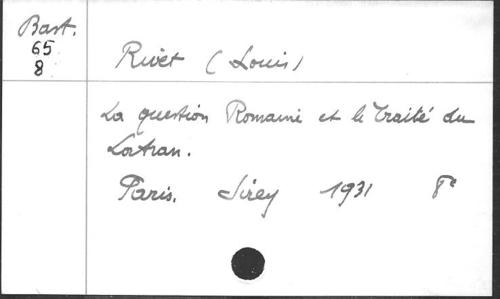 Bast.
65
8
Rivet (Louis)
La question Romaine et le Traité du
Latran.
Paris. Sirey 1931 8°